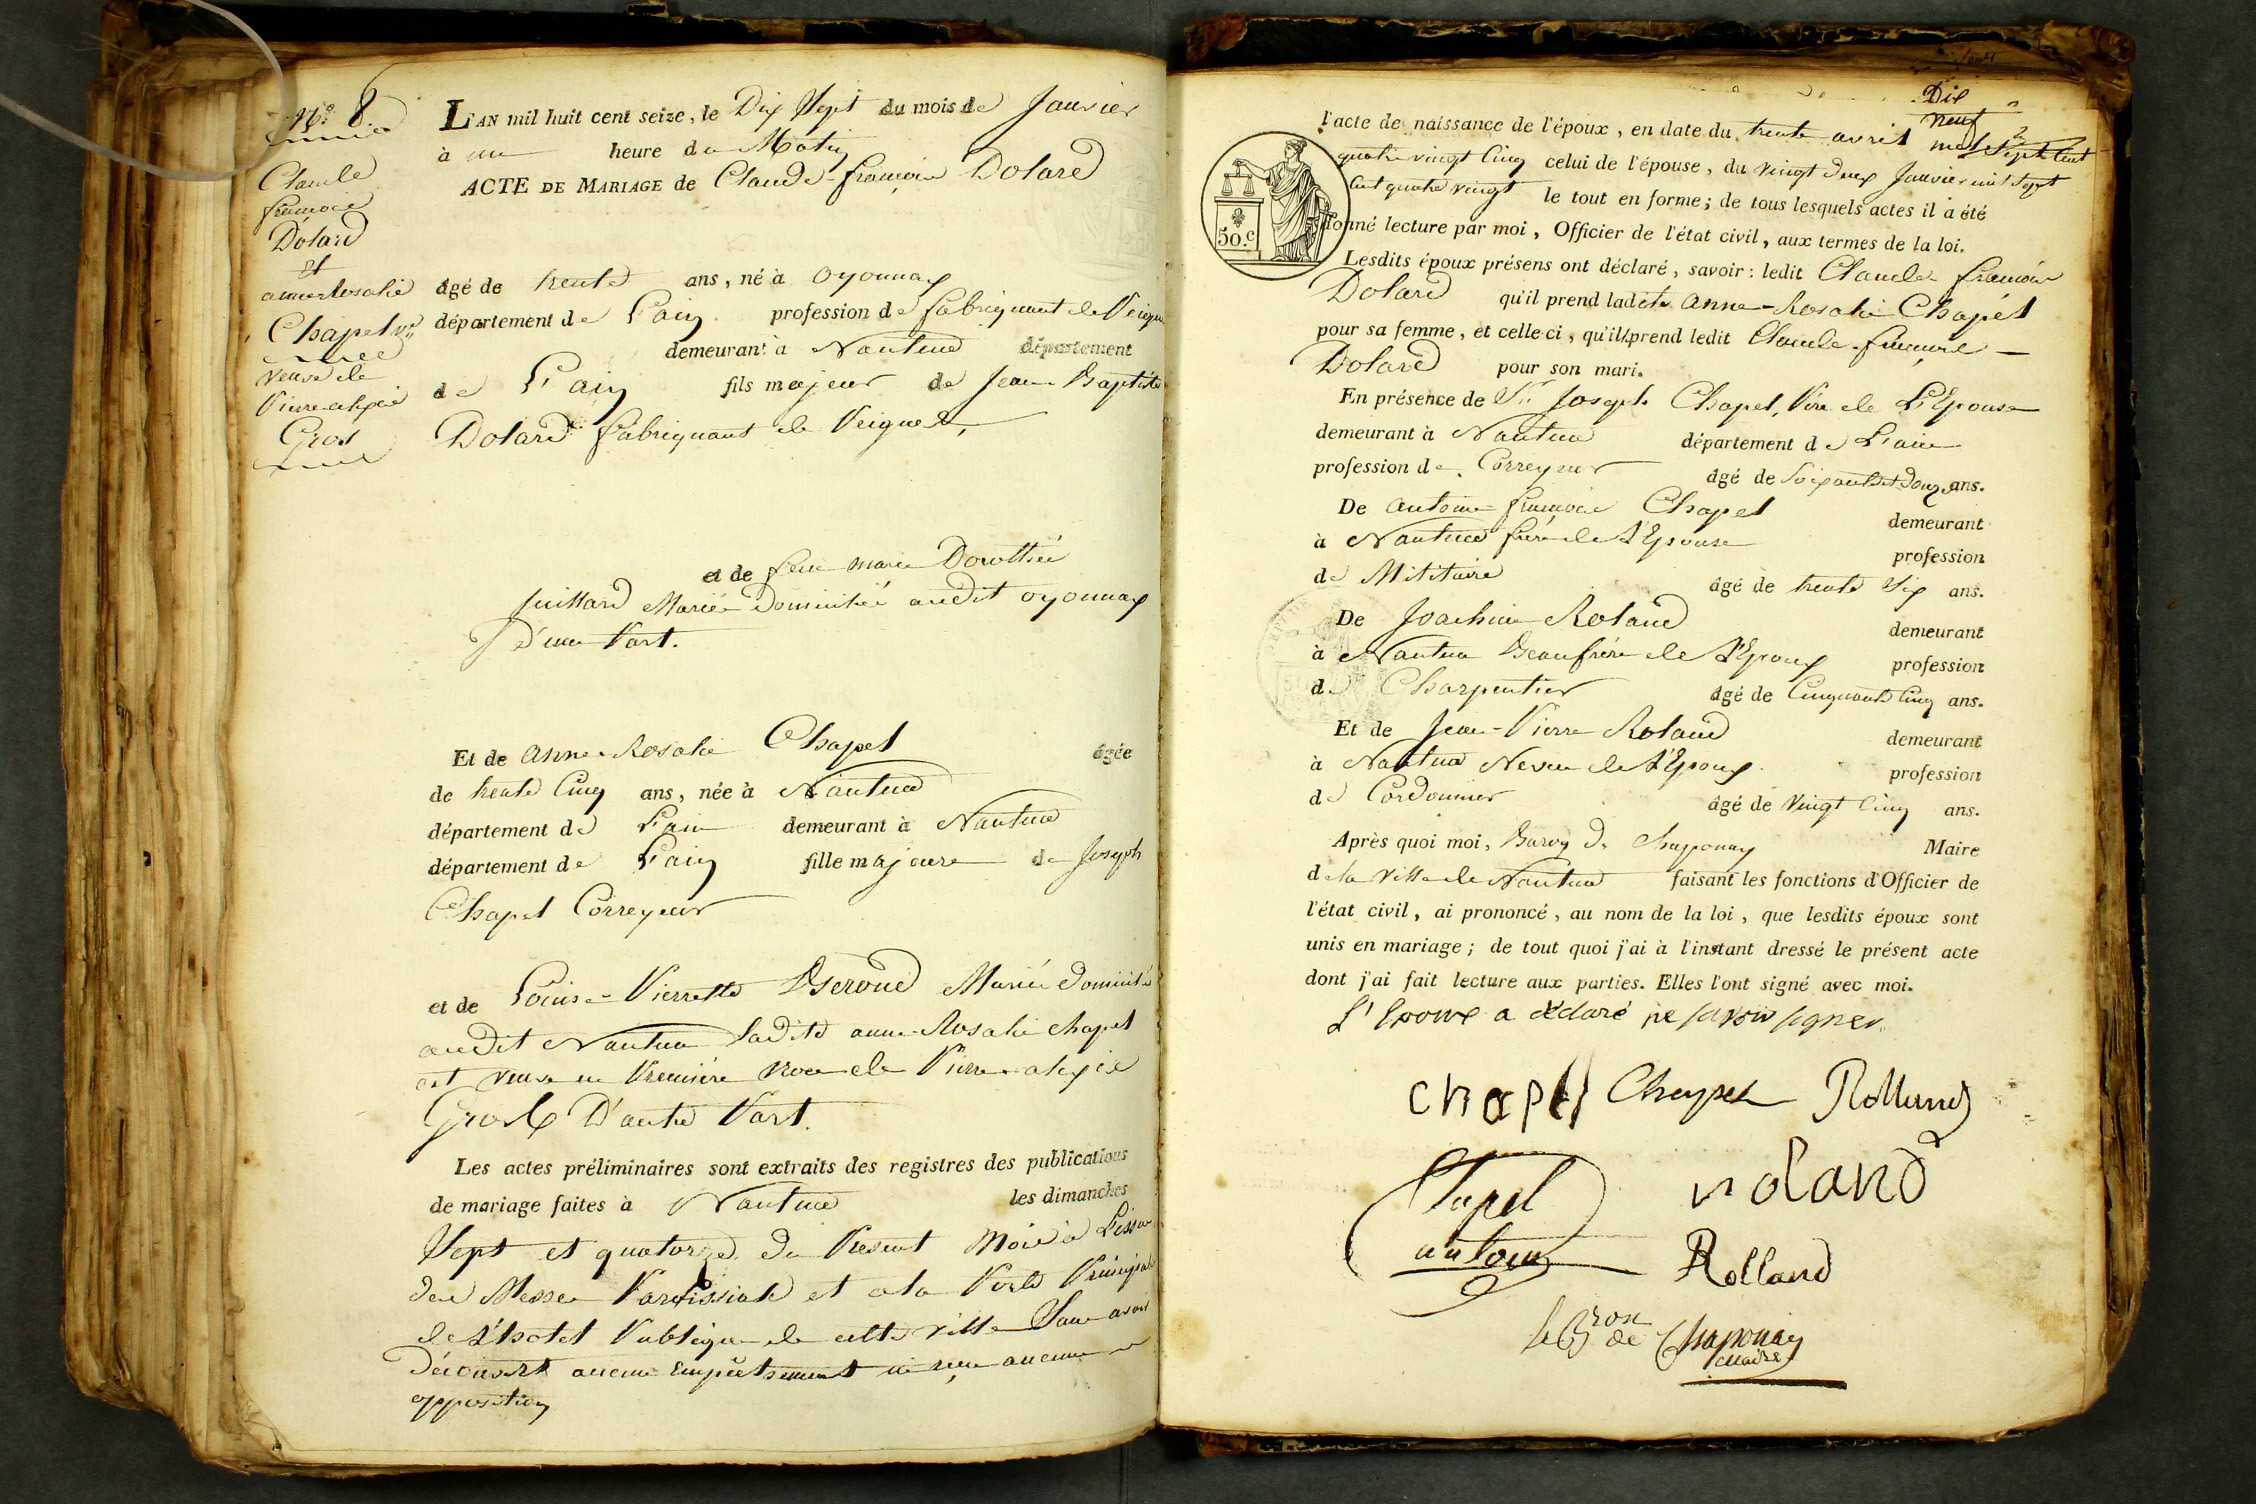 N.º 8
Claude
françois
Dolard
et
anne Rosalie
Chapel
veuve de
Pierre alexis
Gros
L'AN mil huit cent seize, le Dix Sept du mois de Janvier
à une heure du Matin
ACTE DE MARIAGE de Claude-françois Dolard
âgé de trente ans, né à oyonnax
département de L'ain profession de fabriquant de Peignes
demeurant à Nantua département
de L'ain fils majeur de Jean Baptiste
Dolard fabriquant de Peignes,
et de feue marie Dorothée
Juillard Mariés Domiciliés audit oyonnax
d'une Part.
Et de Anne-Rosalie Chapel âgée
de trente Cinq ans, née à Nantua
département de L'ain demeurant à Nantua
département de L'ain fille majeure de Joseph
Chapel Correyeur
et de Louise-Pierrette Béroud Mariés domiciliés
audit Nantua Ladite anne-Rosalie chapel
est veuve en Première Noce de Pierre-alexis
Gros D'autre Part.
Les actes préliminaires sont extraits des registres des publications
de mariage faites à Nantua les dimanches
Sept et quatorze du Présent Mois à L'issue
des Messes Paroissiale et a la Porte Principale
de L'hotel Publique de cette ville Sans avoir
Découvert aucun Empêchement ni reçu aucune
opposition
l'acte de naissance de l'époux, en date du trente avril mil Sept Cent
Dix
neuf
quatre vingt Cinq celui de l'épouse, du vingt deux Janvier mil Sept
Cent quatre vingt le tout en forme; de tous lesquels actes il a été
50.c
donné lecture par moi, Officier de l'état civil, aux termes de la loi.
Lesdits époux présens ont déclaré, savoir: ledit Claude françois
Dolard qu'il prend ladite Anne-Rosalie Chapel
pour sa femme, et celle-ci, qu'il prend ledit Claude-françois
Dolard pour son mari.
En présence de Sr. Joseph Chapel, Père de L'Epouse
demeurant à Nantua département de L'ain
profession de Correyeur âgé de Soixante et Douze ans.
De Antoine françois Chapel demeurant
à Nantua frère de L'Epouse profession
de Militaire âgé de trente Six ans.
De Joachim Roland demeurant
à Nantua Beaufrère de L'Epoux profession
de Charpentier âgé de Cinquante Cinq ans.
Et de Jean-Pierre Roland demeurant
à Nantua Neveu de L'Epoux profession
de Cordonnier âgé de Vingt Cinq ans.
Après quoi moi, Baron de Chaponay Maire
de la Ville de Nantua faisant les fonctions d'Officier de
l'état civil, ai prononcé, au nom de la loi, que lesdits époux sont
unis en mariage; de tout quoi j'ai à l'instant dressé le présent acte
dont j'ai fait lecture aux parties. Elles l'ont signé avec moi.
L'Epoux a déclaré ne savoir signer.
chapel Chapel Rolland
Chapel roland
antoine Rolland
le Bron de Chaponay
Maire